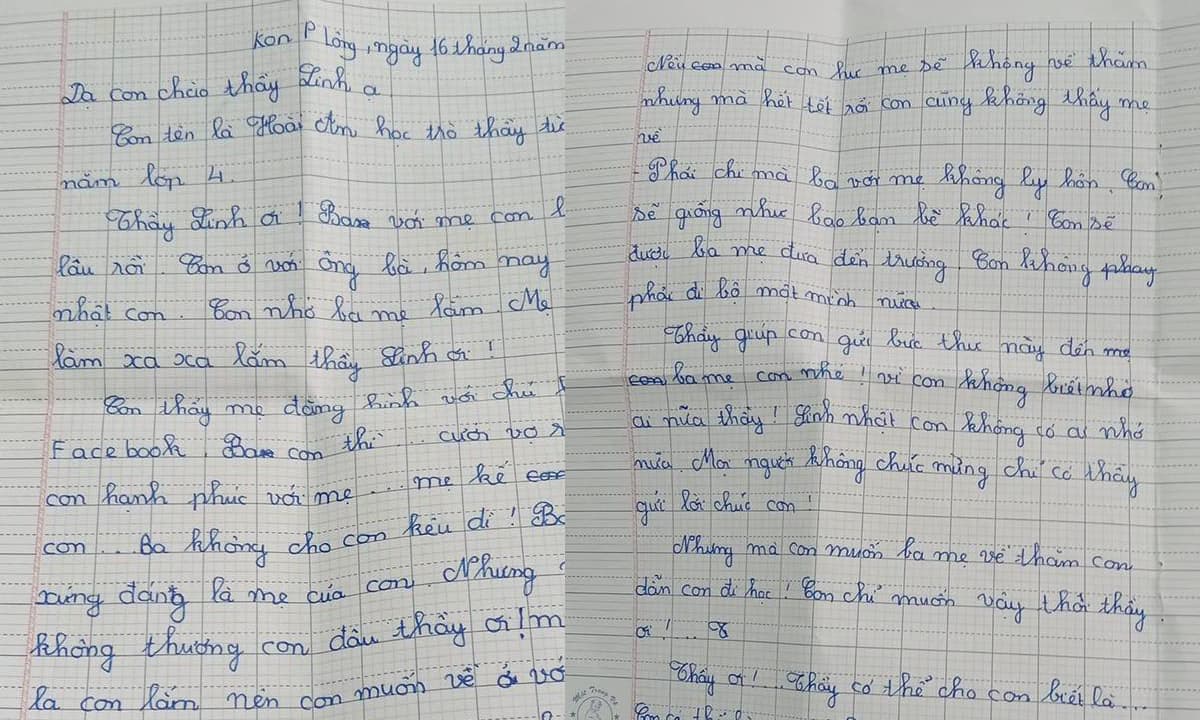 Kon P Lông, ngày 16 tháng 2 năm
Dạ con chào thầy Linh ạ
Con tên là Hoài Ân học trò thầy từ
năm lớp 4.
Thầy Linh ơi ! Ba với mẹ con l
lâu rồi. Con ở với ông bà, hôm nay
nhật con. Con nhớ ba mẹ lắm. Mẹ
làm xa xa lắm thầy Linh ơi !
Con thấy mẹ đăng hình với chú
Facebook. Ba con thì ... cưới vợ
con hạnh phúc với mẹ ... mẹ kế
con ... Ba không cho con kêu dì ! Bà
xứng đáng là mẹ của con. Nhưng
không thương con đâu thầy ơi ! m
la con lắm nên con muốn về ở vớ
Nếu mà con hư mẹ sẽ không về thăm
nhưng mà hết tết rồi con cũng không thấy mẹ
về
- Phải chi mà ba với mẹ không ly hôn. Con
sẽ giống như bao bạn bè khác ! Con sẽ
được ba mẹ đưa đến trường. Con không phay
phải đi bộ một mình nữa.
Thầy giúp con gửi bức thư này đến mẹ
con ba mẹ con nhé ! vì con không biết nhờ
ai nữa thầy ! Sinh nhật con không có ai nhớ
nữa. Mọi người không chúc mừng chỉ có thầy
gửi lời chúc con !
Nhưng mà con muốn ba mẹ về thăm con
dẫn con đi học ! Con chỉ muốn vậy thôi thầy
ơi ! ...
Thầy ơi ! .. Thầy có thể cho con biết là ...